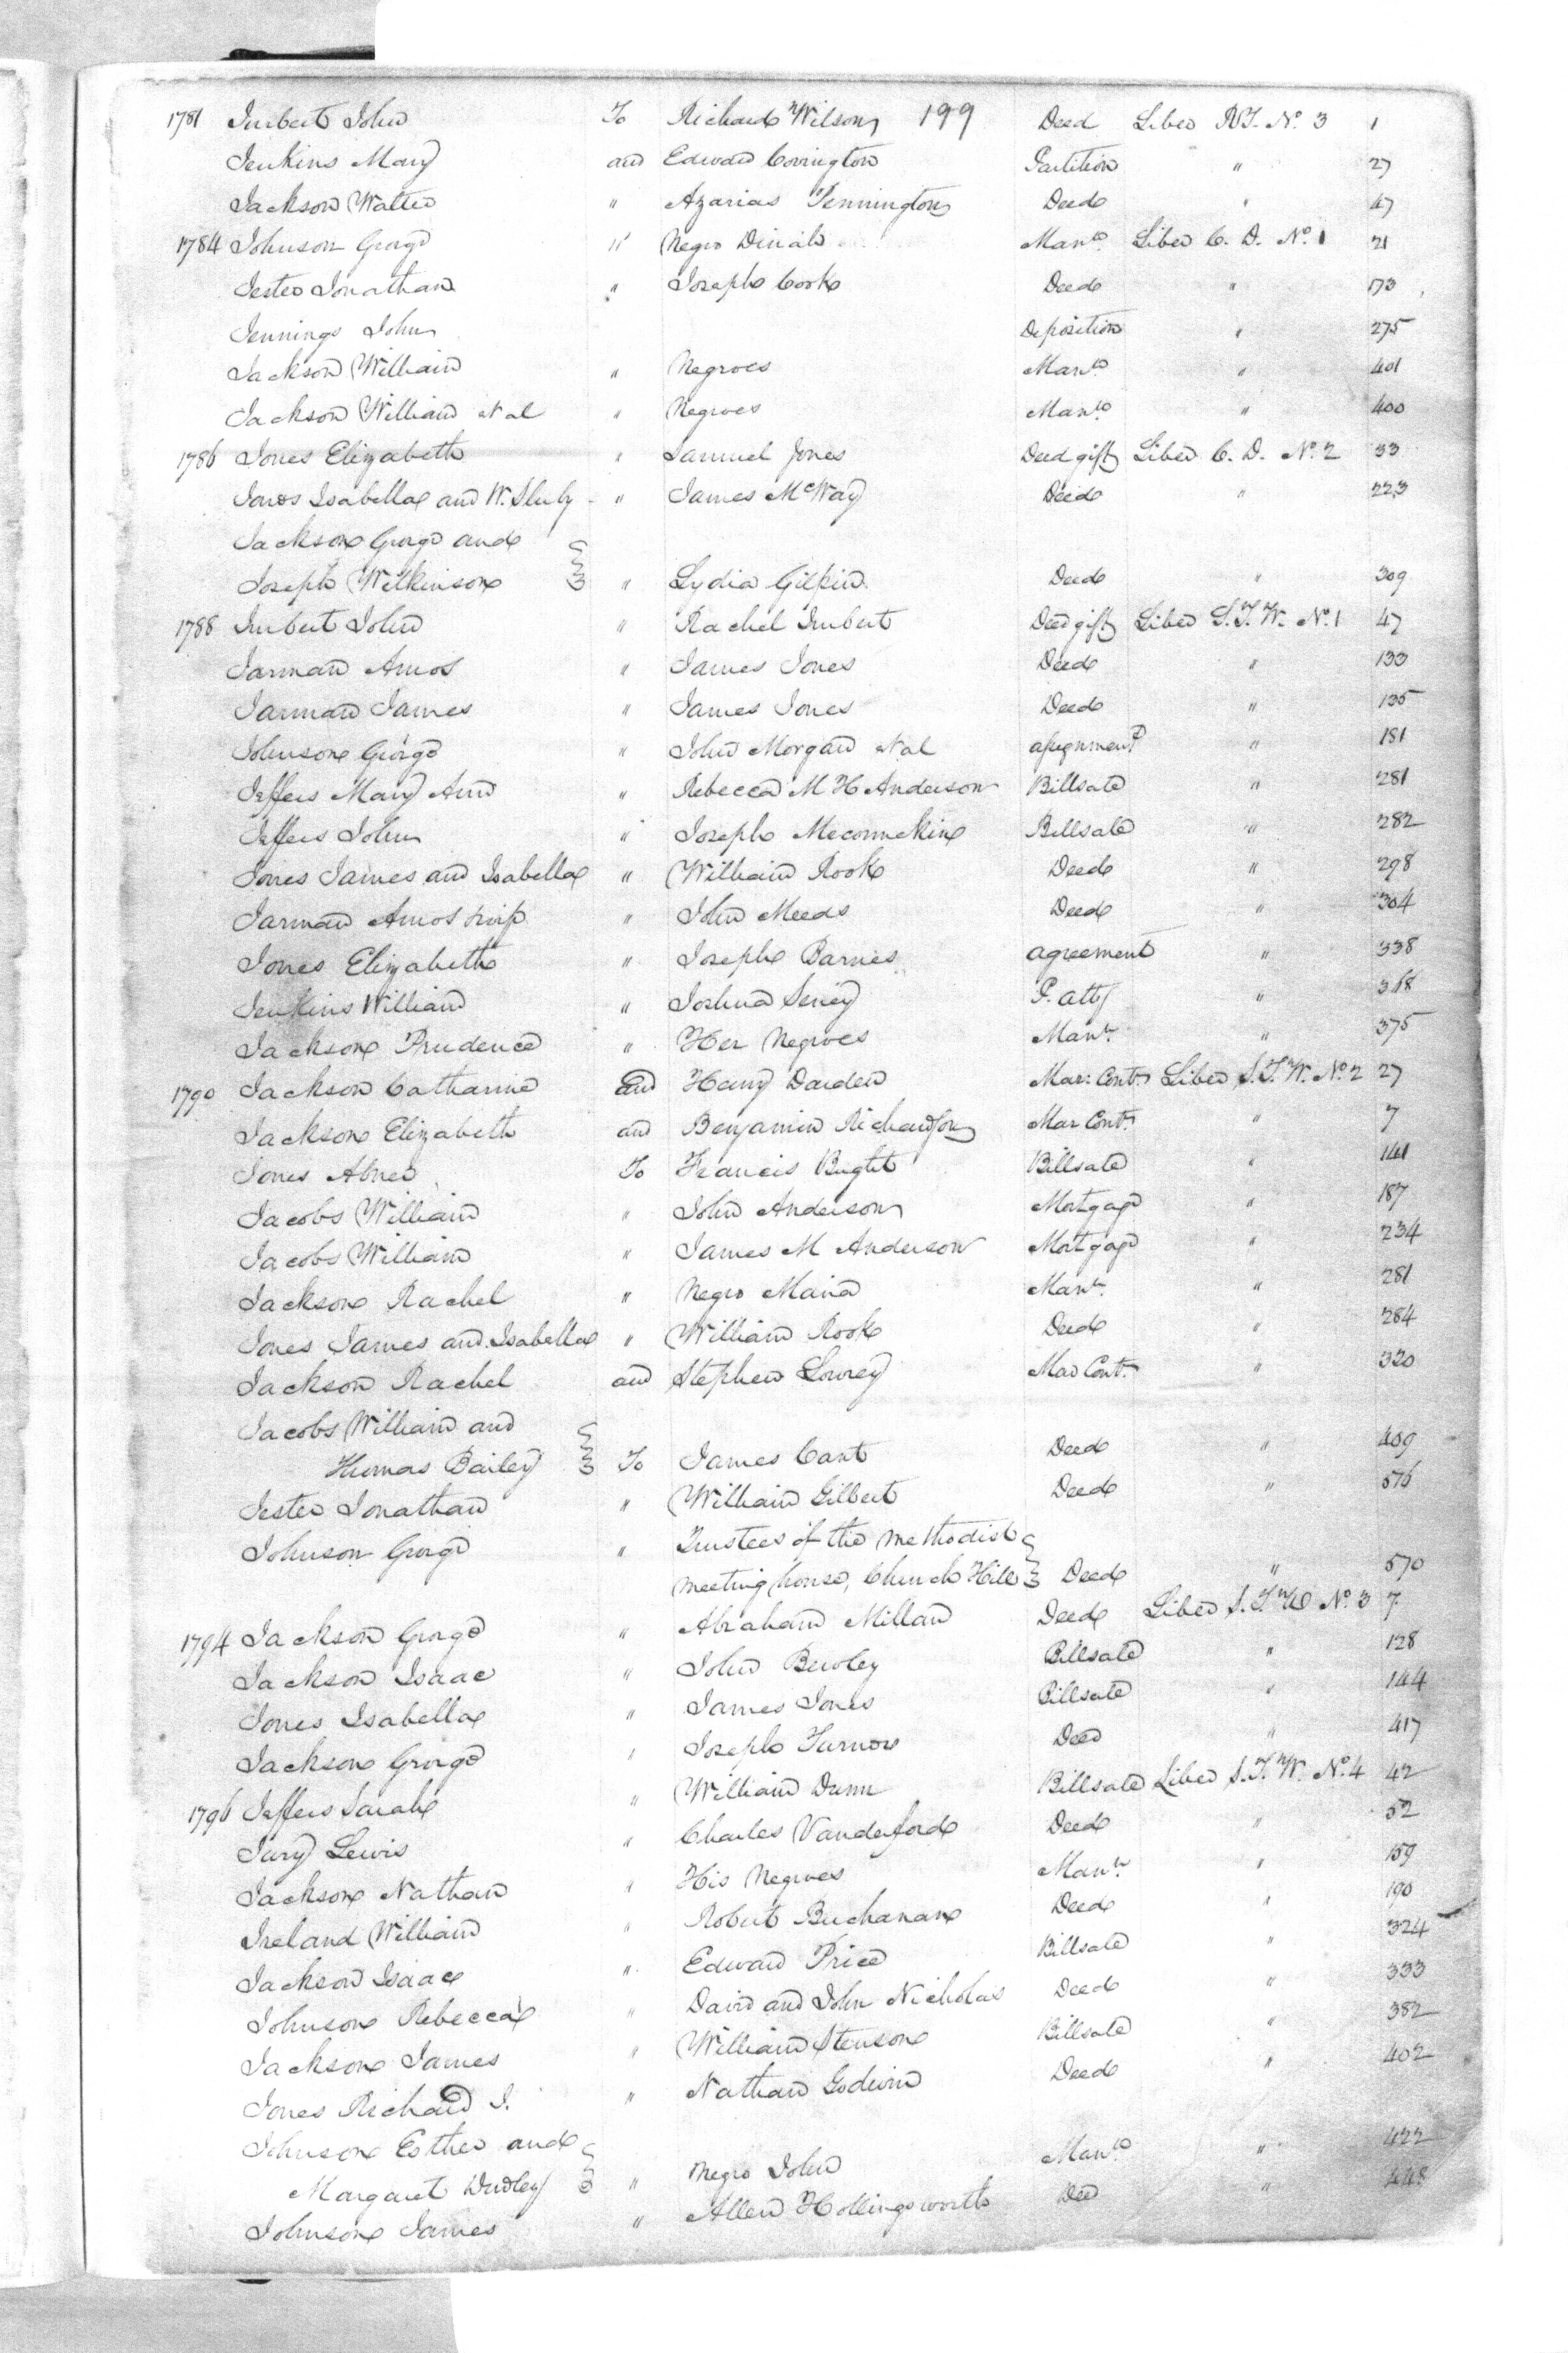 1781 Imbert John To Richard Wilson 199 Deed Liber RT. No. 3 1
Jenkins Mary and Edward Covington Partition " 27
Jackson Walter " Azarias Pennington Deed " 47
1784 Johnson George " Negro Dinah Manⁿ Liber C. D. No. 1 21
Jester Jonathan " Joseph Cook Deed " 173
Jennings John Deposition " 275
Jackson William " Negroes Manⁿ " 401
Jackson William et al " Negroes Manⁿ " 400
1786 Jones Elizabeth " Samuel Jones Deed gift Liber C. D. No. 2 33
Jones Isabella and W. Sluby " James McWay Deed " 223
Jackson George and
Joseph Wilkinson " Lydia Gilpin Deed " 309
1788 Imbert John " Rachel Imbert Deed gift Liber S.T.W. No. 1 47
Jarman Amos " James Jones Deed " 133
Jarman James " James Jones Deed " 135
Johnson George " John Morgan et al assignment " 181
Jeffers Mary Ann " Rebecca M H Anderson Billsale " 281
Jeffers John " Joseph Meconnekin Billsale " 282
Jones James and Isabella " William Rook Deed " 298
Jarman Amos " John Meeds Deed " 304
Jones Elizabeth " Joseph Barnes agreement " 338
Jenkins William " Joshua Seney P. atty " 368
Jackson Prudence " Her Negroes Manⁿ " 375
1790 Jackson Catharine and Henry Darden Mar: Cont. Liber S.T.W. No. 2 27
Jackson Elizabeth and Benjamin Richardson Mar Cont. " 7
Jones Abner To Francis Bright Billsale " 141
Jacobs William " John Anderson Mortgage " 187
Jacobs William " James M Anderson Mortgage " 234
Jackson Rachel " Negro Maria Manⁿ " 281
Jones James and Isabella " William Rook Deed " 284
Jackson Rachel and Stephen Lowrey Mar Cont. " 320
Jacobs William and
Thomas Bailey To James Cant Deed " 409
Jester Jonathan " William Gilbert Deed " 576
Johnson George " Trustees of the Methodist
meeting house, Church Hill Deed " 570
1794 Jackson George " Abraham Millan Deed Liber S.T.W. No. 3 7
Jackson Isaac " John Bewley Billsale " 128
Jones Isabella " James Jones Billsale " 144
Jackson George " Joseph Turnor Deed " 417
1796 Jeffers Sarah " William Dunn Billsale Liber S.T.W. No. 4 42
Jury Lewis " Charles Vanderford Deed " 52
Jackson Nathan " His Negroes Manⁿ " 159
Ireland William " Robert Buchanan Deed " 190
Jackson Isaac " Edward Price Billsale " 324
Johnson Rebecca " David and John Nicholas Deed " 333
Jackson James " William Stenson Billsale " 382
Jones Richard I. " Nathan Godwin Deed " 402
Johnson Esther and
Margaret Dudley " Negro John Manⁿ " 422
Johnson James " Allen Hollingsworth Deed " 448